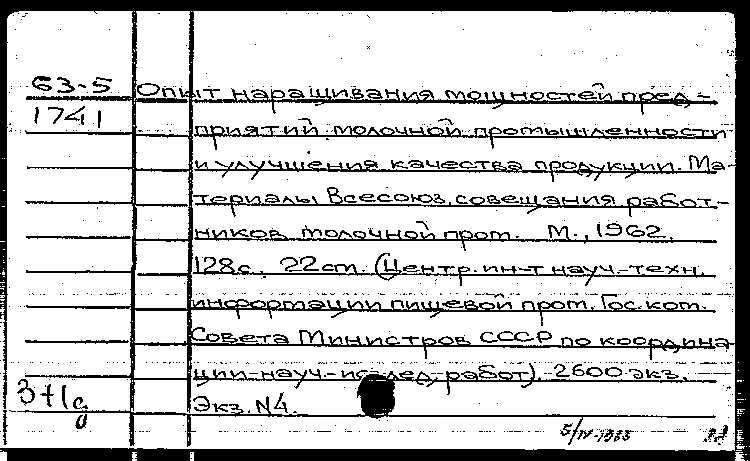 63-5 Опыт наращивания мощностей пред-
1741 приятий молочной промышленности
и улучшения качества продукции. Ма-
териалы Всесоюз. совещания работ-
ников молочной пром. М., 1962.
128с. 22см. (Центр. ин-т науч.-техн.
информации пищевой пром. Гос. ком.
Совета Министров СССР по координа-
ции науч.-исслед. работ). 2600 экз.
3+1д Экз. N4.
5/IV-1963